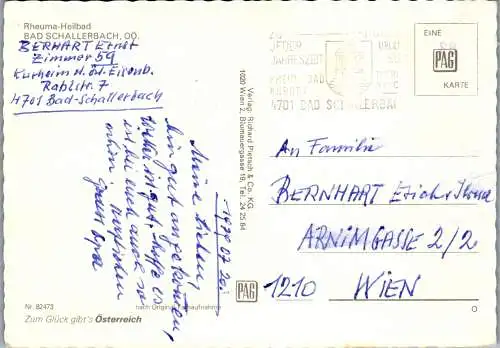 Rheuma-Heilbad
BAD SCHALLERBACH, OÖ.
BERHART Ernst
Zimmer 59
Kurheim d. öst. Eisenb.
Rablstr. 7
4701 Bad-Schallerbach
ZU
JEDER
JAHRESZEIT
4701 BAD SCHALLERBACH
EINE
PAG
KARTE
Verlag: Richard Pietsch & Co. KG.
1020 Wien 2, Blumauergasse 19, Tel. 24 25 64
1979 07 20.
Meine Lieben,
Bin gut angekommen,
Wetter ist gut, hoffe es
ist bei euch auch so
schön. Herzlichen
Gruss Opa
An Familie
BERNHART Erich +
ARNIMGASSE 2/2
1210 WIEN
PAG
Nr. 82473
nach Original-Farbaufnahme
Zum Glück gibt's Österreich